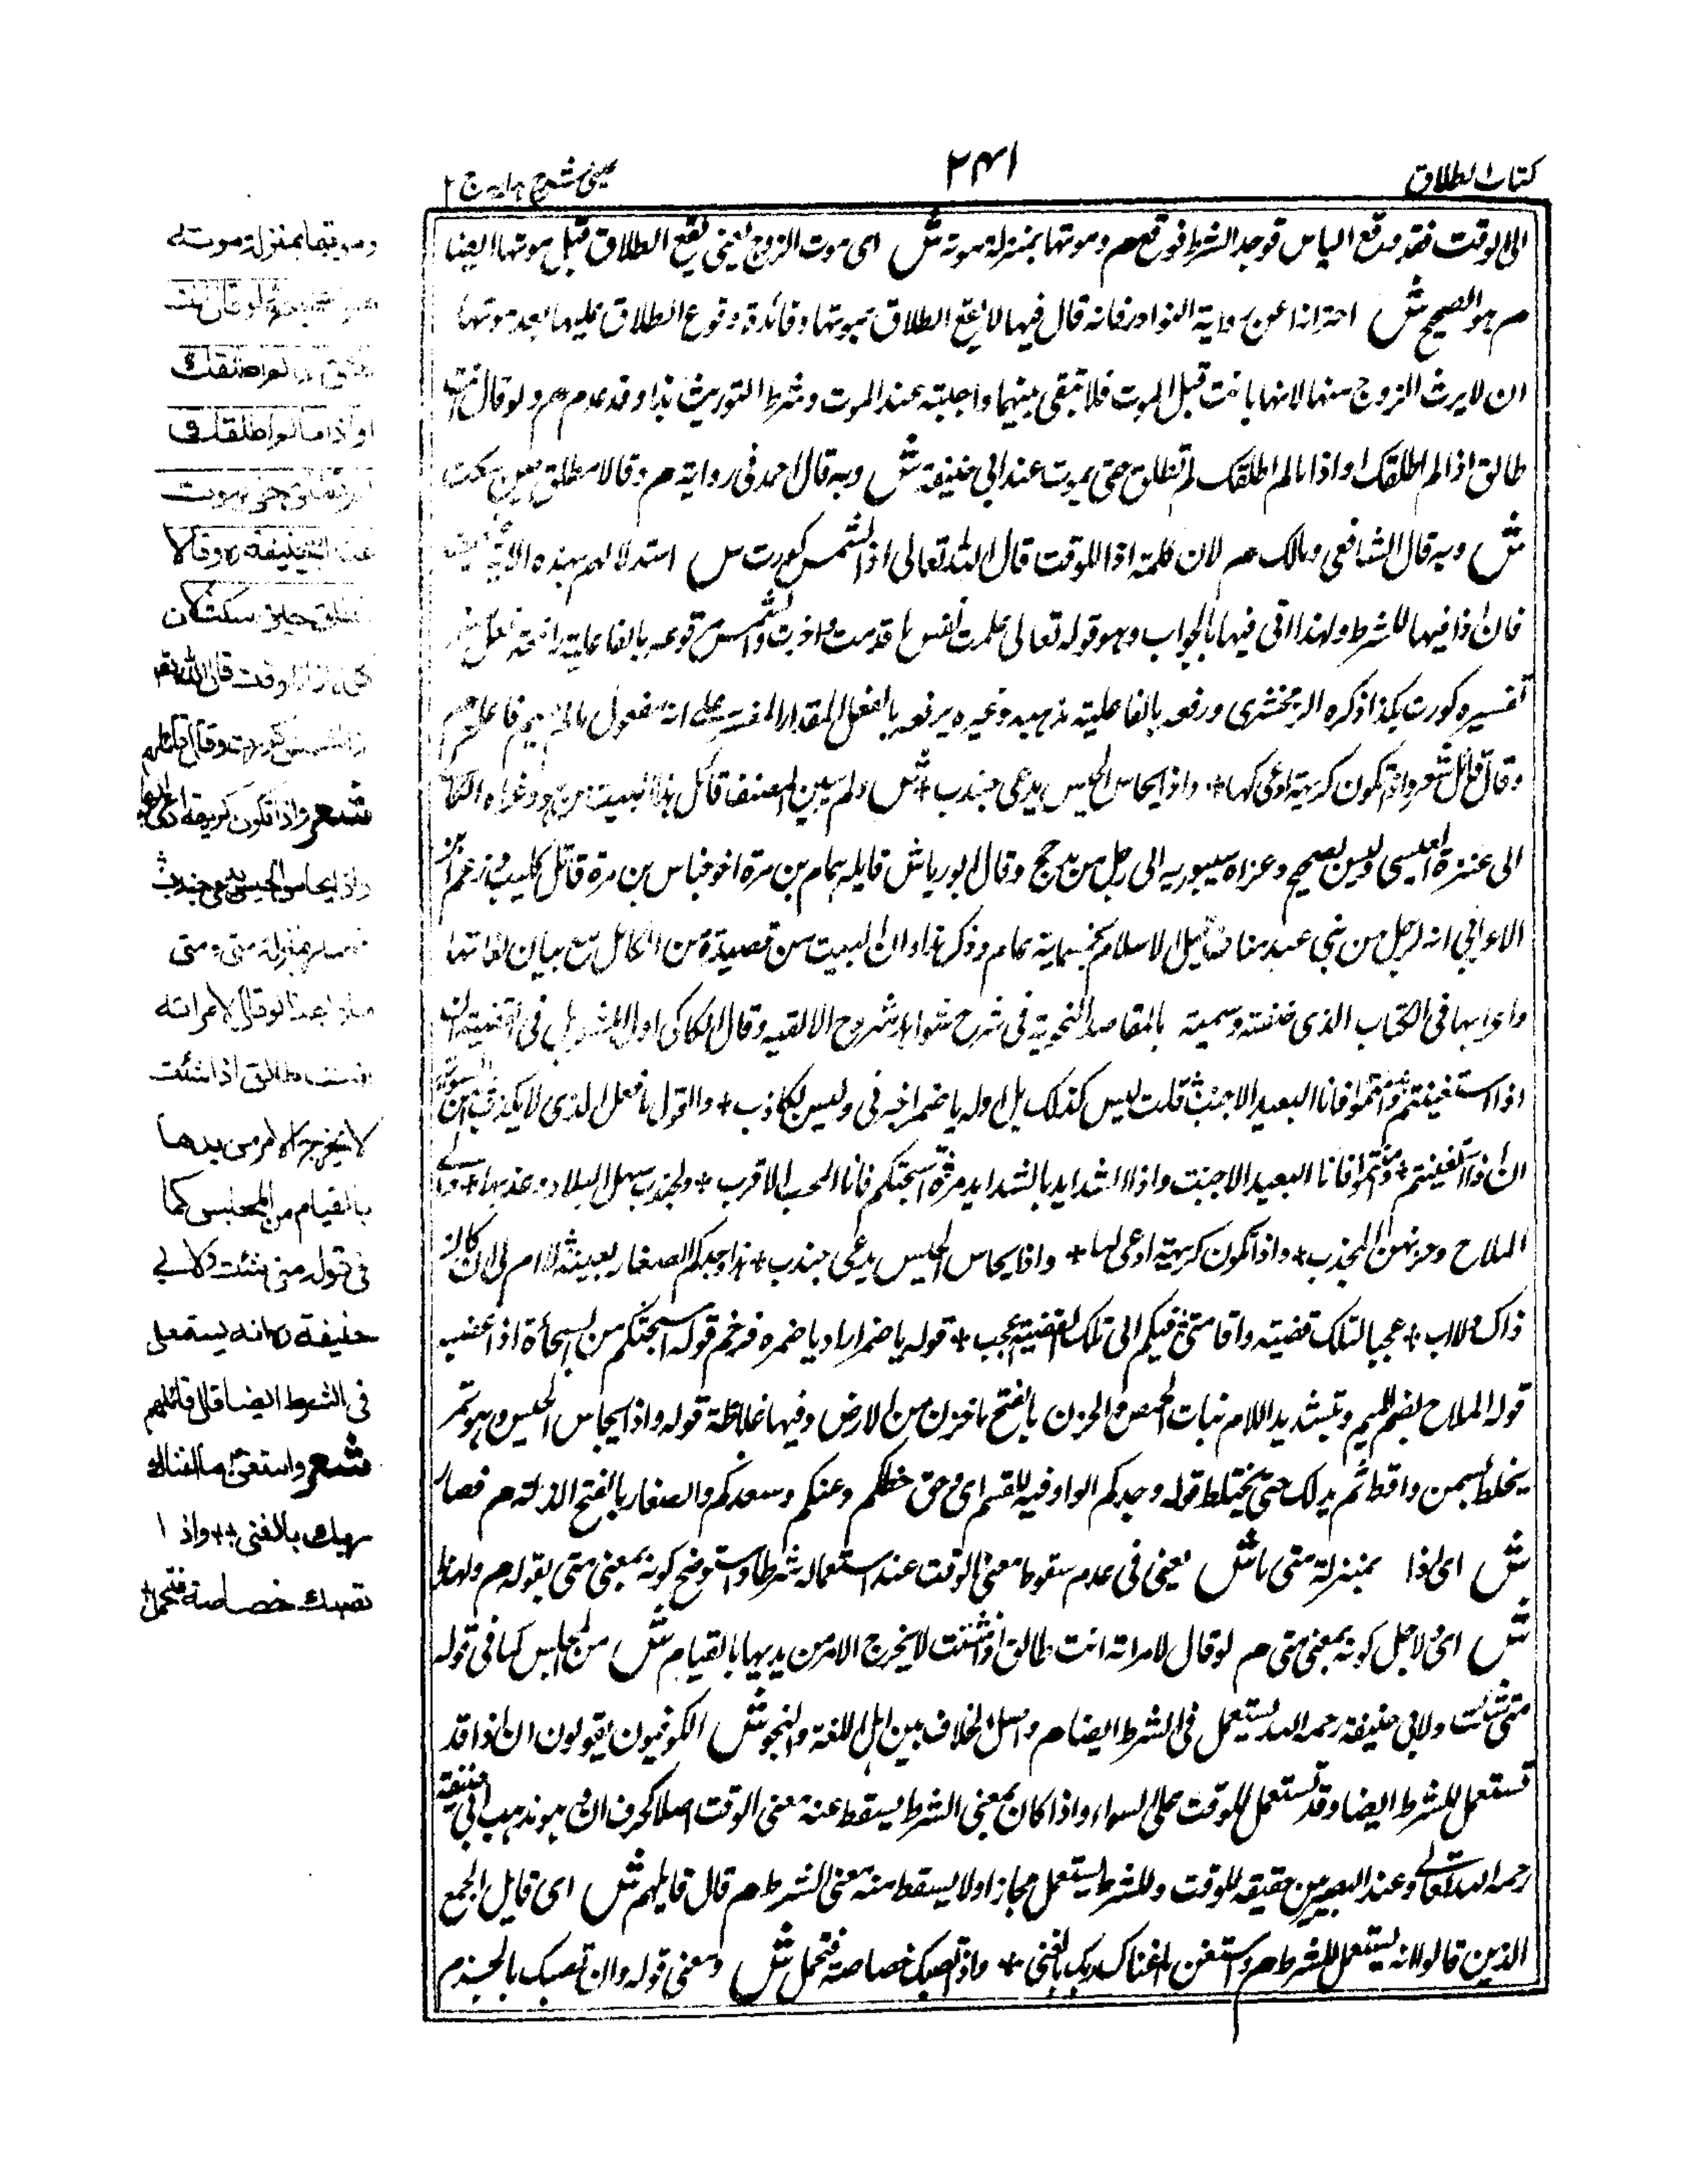 كتاب الطلاق
٢٤١
عینی شرح هدایه ج ٢
الى الوقت فقد وقع الياس فوجد الشرط فوقع م وموتها بمنزلة موته ش اى موت الزوج يعنى يقع الطلاق قبل موتها ايضا
م هو الصحيح ش احترازا عن رواية النوادر فانه قال فيها لا يقع الطلاق بموتها وفائدة وقوع الطلاق عليها بعد موتها
ان لا يرث الزوج منها لانها بانت قبل الموت فلا تبقى بينهما واجلبته عند الموت وشرط التوريث هذا وقد عدم م ولو قال انت
طالق اذا لم اطلقك او اذا ما لم اطلقك لم تطلق حتى يموت عند ابى حنيفة ش وبه قال احمد فى رواية م وقالا تطلق حين سكت
ش وبه قال الشافعى ومالك م لان كلمة اذا للوقت قال الله تعالى اذا الشمس كورت ش استدلالهم بهذه الآية
فان اذا فيها للشرط ولهذا اتى فيها بالجواب وهو قوله تعالى علمت نفس ما قدمت واخرت والشمس مرفوعه بالفاعلية رافعه فعل
تفسيره كورت هكذا ذكره الزمخشرى ورفعه بالفاعلية مذهبه وغيره يرفعه بالفعل المقدار المفسر على انه مفعول ما لم يسم فاعله م
وقال قائل شعر واذا تكون كريهة ادعى لها + واذا يحاس الحيس يدعى جندب + ش ولم يبين المصنف قائل هذا البيت من هو وعزاه
الى عنترة العبسى وليس بصحيح وعزاه سيبويه الى رجل من مذحج وقال ابو رياش قايله همام بن مرة اخو جساس بن مرة قاتل كليب وزعم ابن
الاعرابى انه لرجل من بنى عبد مناف قبل الاسلام بخمسماية عام وذكر هذا وان البيت من قصيدة من الكامل مع بيان لغاتها
واعرابها فى الكتاب الذى صنفته وسميته بالمقاصد النحوية فى شرح شواهد شروح الالفيه وقال الكاكى اول الشعر هل فى القضية ان
اذا استغنيتم وامنتم فانا البعيد الاجنب قلت ليس كذلك بل اوله يا ضمر اخبرنى وليس بكاذب + والقول يا فعل الذى لا يكذب
ان اذا استغنيتم + وامنتم فانا البعيد الاجنب واذا الشدايد بالشدايد مرة اشجتكم فانا المحب الاقرب + ولجندب سهل البلاد وعذبها + ولى
الملاح وحزنهن المجدب + واذا تكون كريهة ادعى لها + واذا يحاس الحيس يدعى جندب + هذا وجدكم الصغار بعينه لا ام لى ان كان
ذاك ولا اب + عجبا لتلك قضية واقامتى فيكم الى تلك القضية اعجب + قوله يا ضمر اراد يا ضمره فرخم قوله اشجتكم من اشجاه اذا اغضبه
قوله الملاح بضم الميم وتشديد اللام نبات الحمص والحزن بالفتح ما خزن من الارض وفيها غلاظة قوله واذا يحاس الحيس وهو تمر
يخلط بسمن واقط ثم يدلك حتى يختلط قوله وجدكم الواو فيه للقسم اى وحق حظكم وعنكم وسعدكم والصغار بالفتح الذلة م فصار
ش اى اذا بمنزلة متى ما ش يعنى فى عدم سقوط معنى الوقت عند استعماله شرطا واستوضح كونه بمعنى متى بقوله م ولهذا
ش اى ولاجل كونه بمعنى متى م لو قال لامراته انت طالق اذا شئت لا يخرج الامر من يديها بالقيام ش من المجلس كما فى قوله
متى شئت ولابى حنيفة رحمه الله يستعمل فى الشرط ايضا م واصل الخلاف بين اهل اللغة والنحو ش الكوفيون يقولون ان اذا قد
تستعمل للشرط ايضا وقد تستعمل للوقت على السواء واذا كان بمعنى الشرط يسقط عنه معنى الوقت اصلا كحرف ان وهو مذهب ابى حنيفة
رحمه الله تعالى وعند البصريين حقيقه للوقت وللشرط يستعمل مجازا ولا يسقط منه معنى الشرط م قال قايلهم ش اى قايل الجمع
الذين قالوا انه يستعمل للشرط م واستغن ما اغناك ربك بالغنى + واذا تصبك خصاصة فتحمل ش ومعنى قوله وان تصبك بالجزم
وموتها بمنزلة موته
لم اطلقك
او اذا ما لم اطلقك
لم تطلق حتى يموت
عند ابى حنيفة رہ وقالا
تطلق حين سكت لان
كلمة اذا للوقت قال الله تعہ
اذا الشمس كورت وقال قائلهم
شعر واذا تكون كريهة ادعى لها
واذا يحاس الحيس يدعى جندب
فصار بمنزلة متى ومتى
ما ولهذا لو قال لامراته
انت طالق اذا شئت
لا يخرج الامر من يدها
بالقيام من المجلس كما
فى قوله متى شئت ولابى
حنيفة رہ انه يستعمل
فى الشرط ايضا قال قائلهم
شعر واستغن ما اغناك
ربك بالغنى ++ واذا
تصبك خصاصة فتحمل